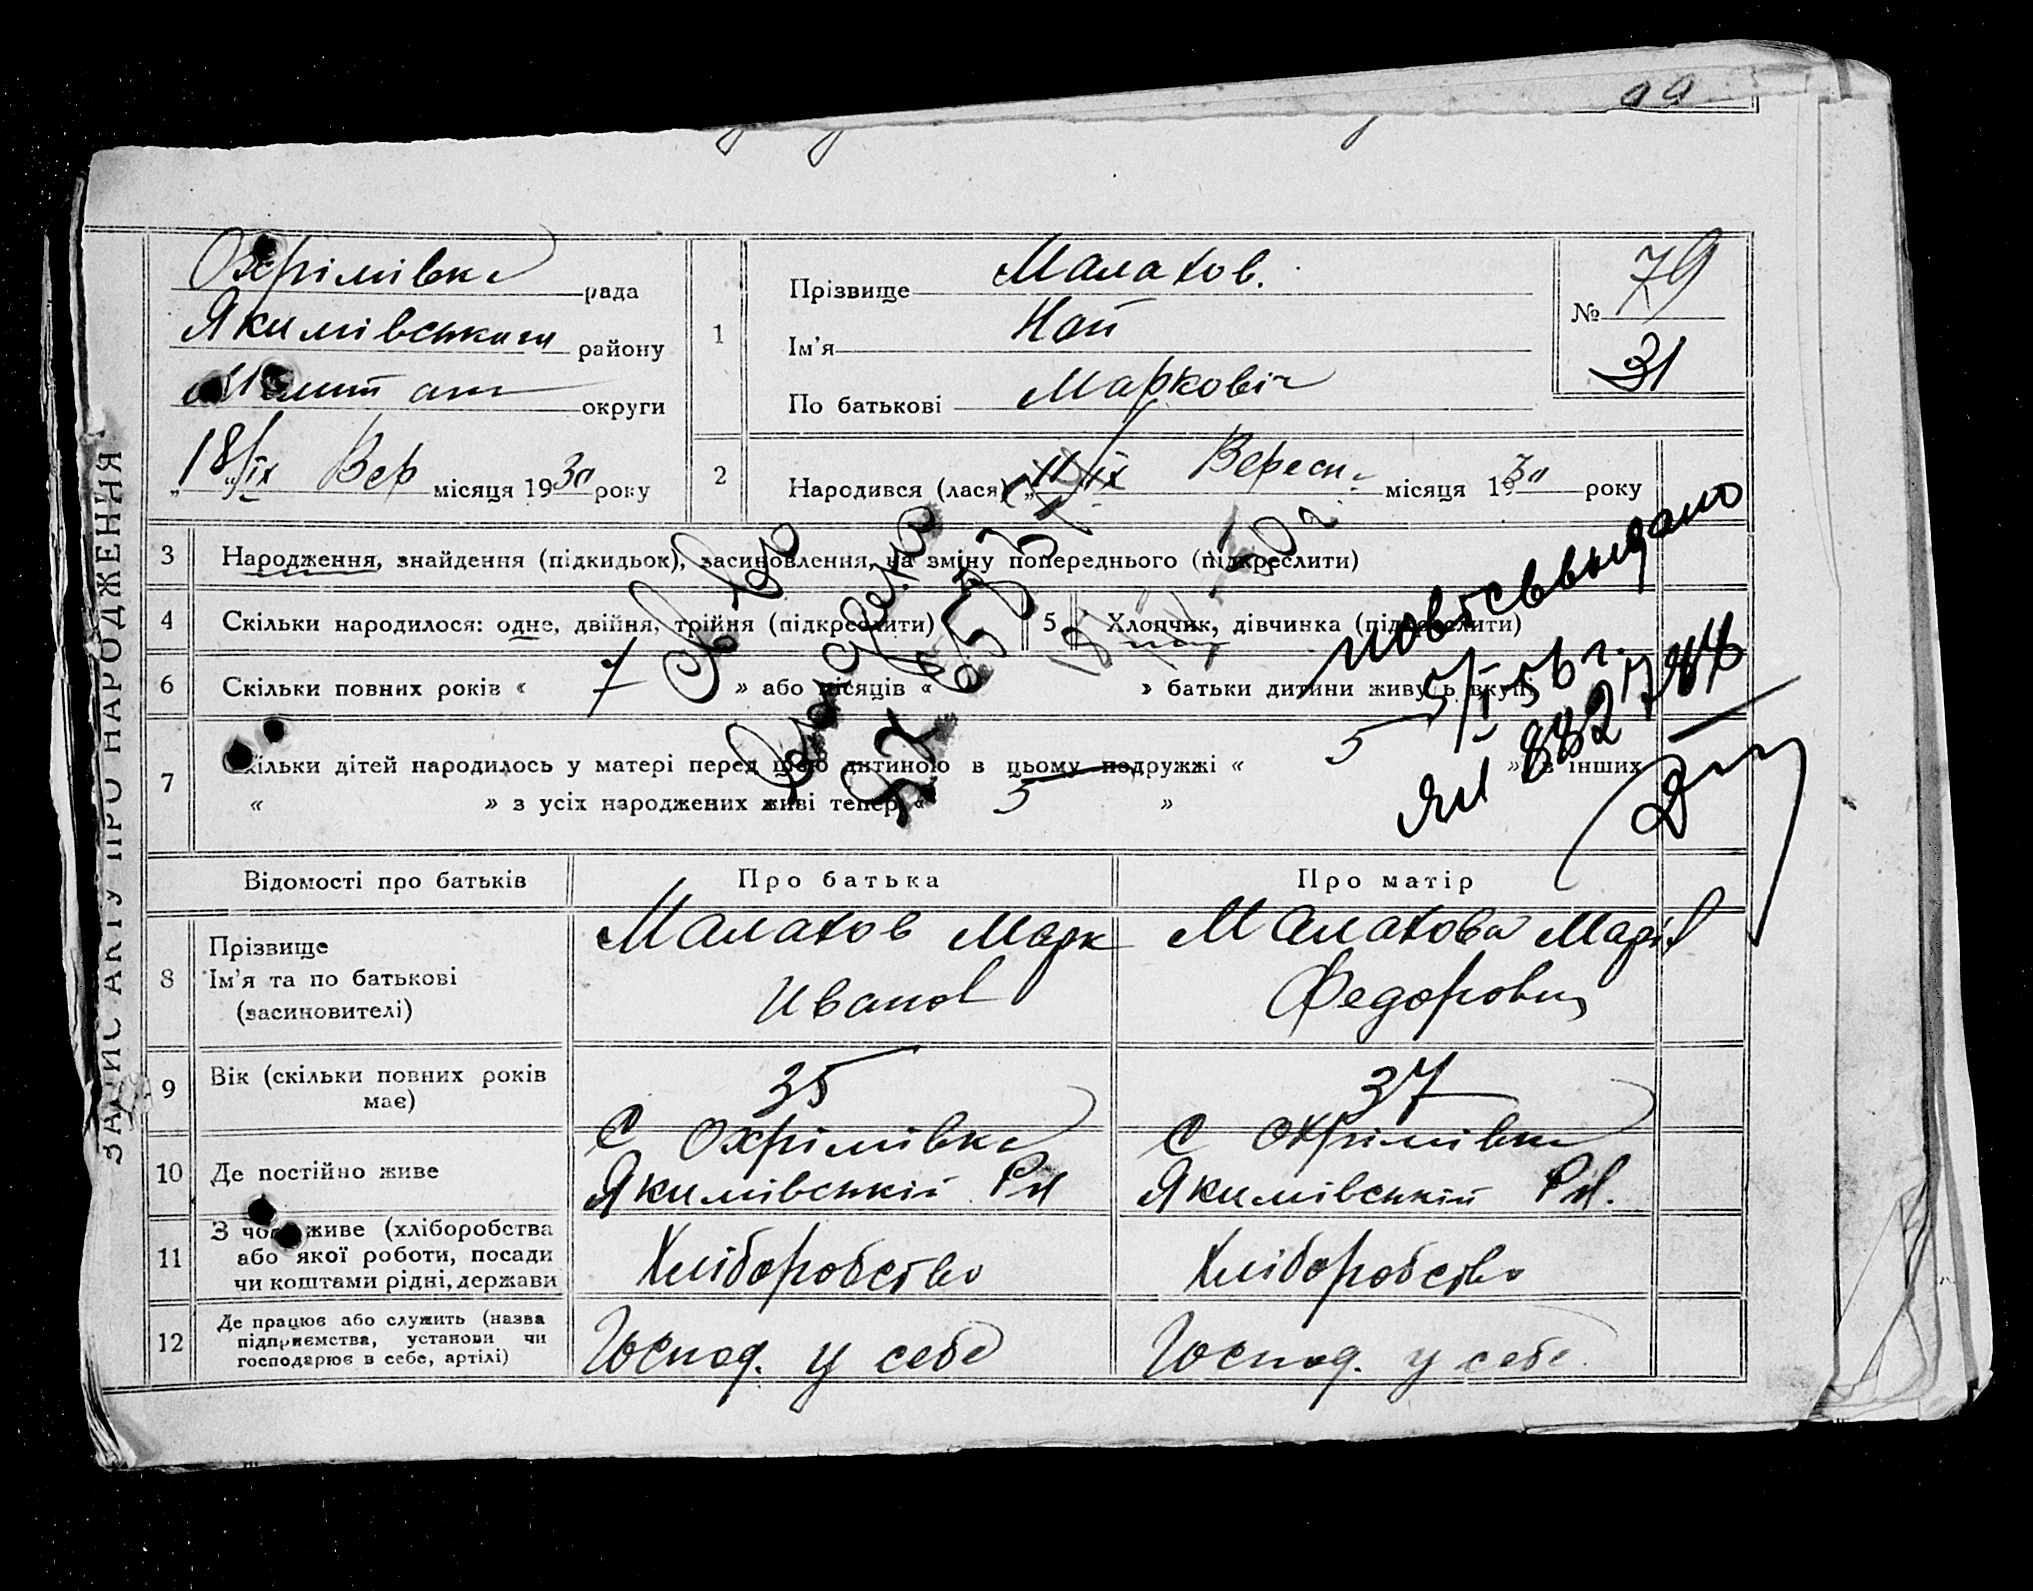 Охрімівка рада
Якимівського району
Меліт округи
„18/ІХ Вер місяця 1930 року
1
Прізвище Малахов.
Ім'я
По батькові Маркович
№ 79
31
2
Народився (лася) „11/ІХ Вересн місяця 1930 року
ЗАПИС АКТУ ПРО НАРОДЖЕННЯ
3 Народження, знайдення (підкидьок), засиновлення, на зміну попереднього (підкреслити)
4 Скільки народилося: одне, двійня, трійня (підкреслити)
5 Хлопчик, дівчинка (підкреслити)
6 Скільки повних років « 7 » або місяців « » батьки дитини живуть вкупі
7 Скільки дітей народилось у матері перед цією дитиною в цьому подружжі « 5 » в інших
« » з усіх народжених живі тепер « 5 »
повт св выдано
5/I-56 г.
ЯЛ
Відомості про батьків Про батька Про матір
8 Прізвище
Ім'я та по батькові
(засиновителі)
Малахов Марк
Иванов
Малахова Марія
Федоровн
9 Вік (скільки повних років
має)
35
37
10 Де постійно живе
С Охрімівка
Якимівській Рн
С Охрімівка
Якимівській Рн.
11 З чого живе (хліборобства
або якої роботи, посади
чи коштами рідні, держави
Хліборобство
Хліборобство
12 Де працює або служить (назва
підприємства, установи чи
господарює в себе, артілі)
Господ. у себе
Господ. у себе.